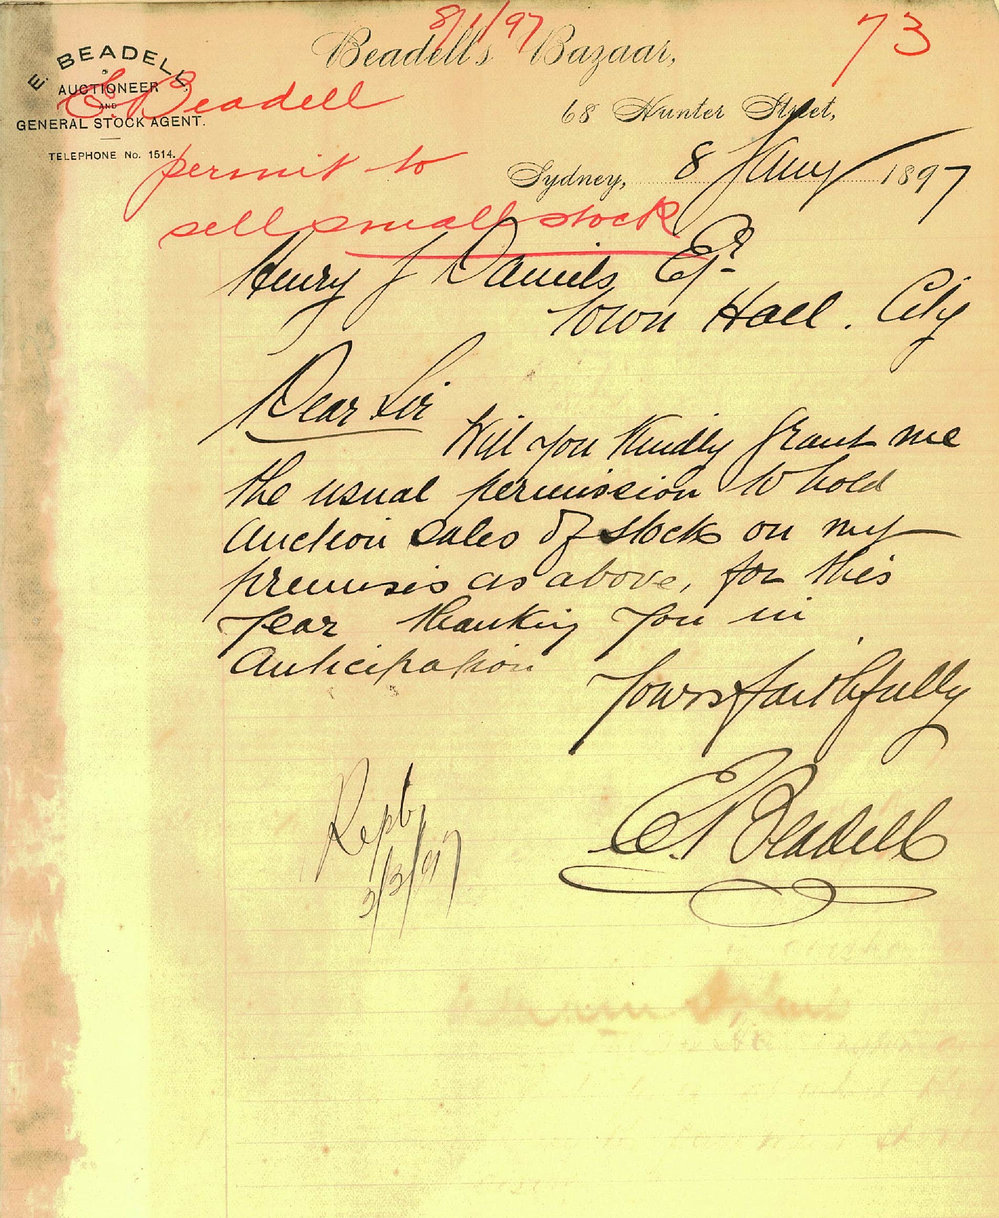 8/1/97
73
E. BEADELL
AUCTIONEER
AND
GENERAL STOCK AGENT.
TELEPHONE No. 1514.
Beadell's Bazaar,
68 Hunter Street,
Sydney, 8 Jany 1897
E. Beadell
permit to
sell small stock
Henry J Daniels Esqr
Town Hall. City
Dear Sir
Will you Kindly grant me
the usual permission to hold
auction sales of stock on my
premisis as above, for this
year thanking you in
anticipation
Yours faithfully
E. Beadell
2/3/97